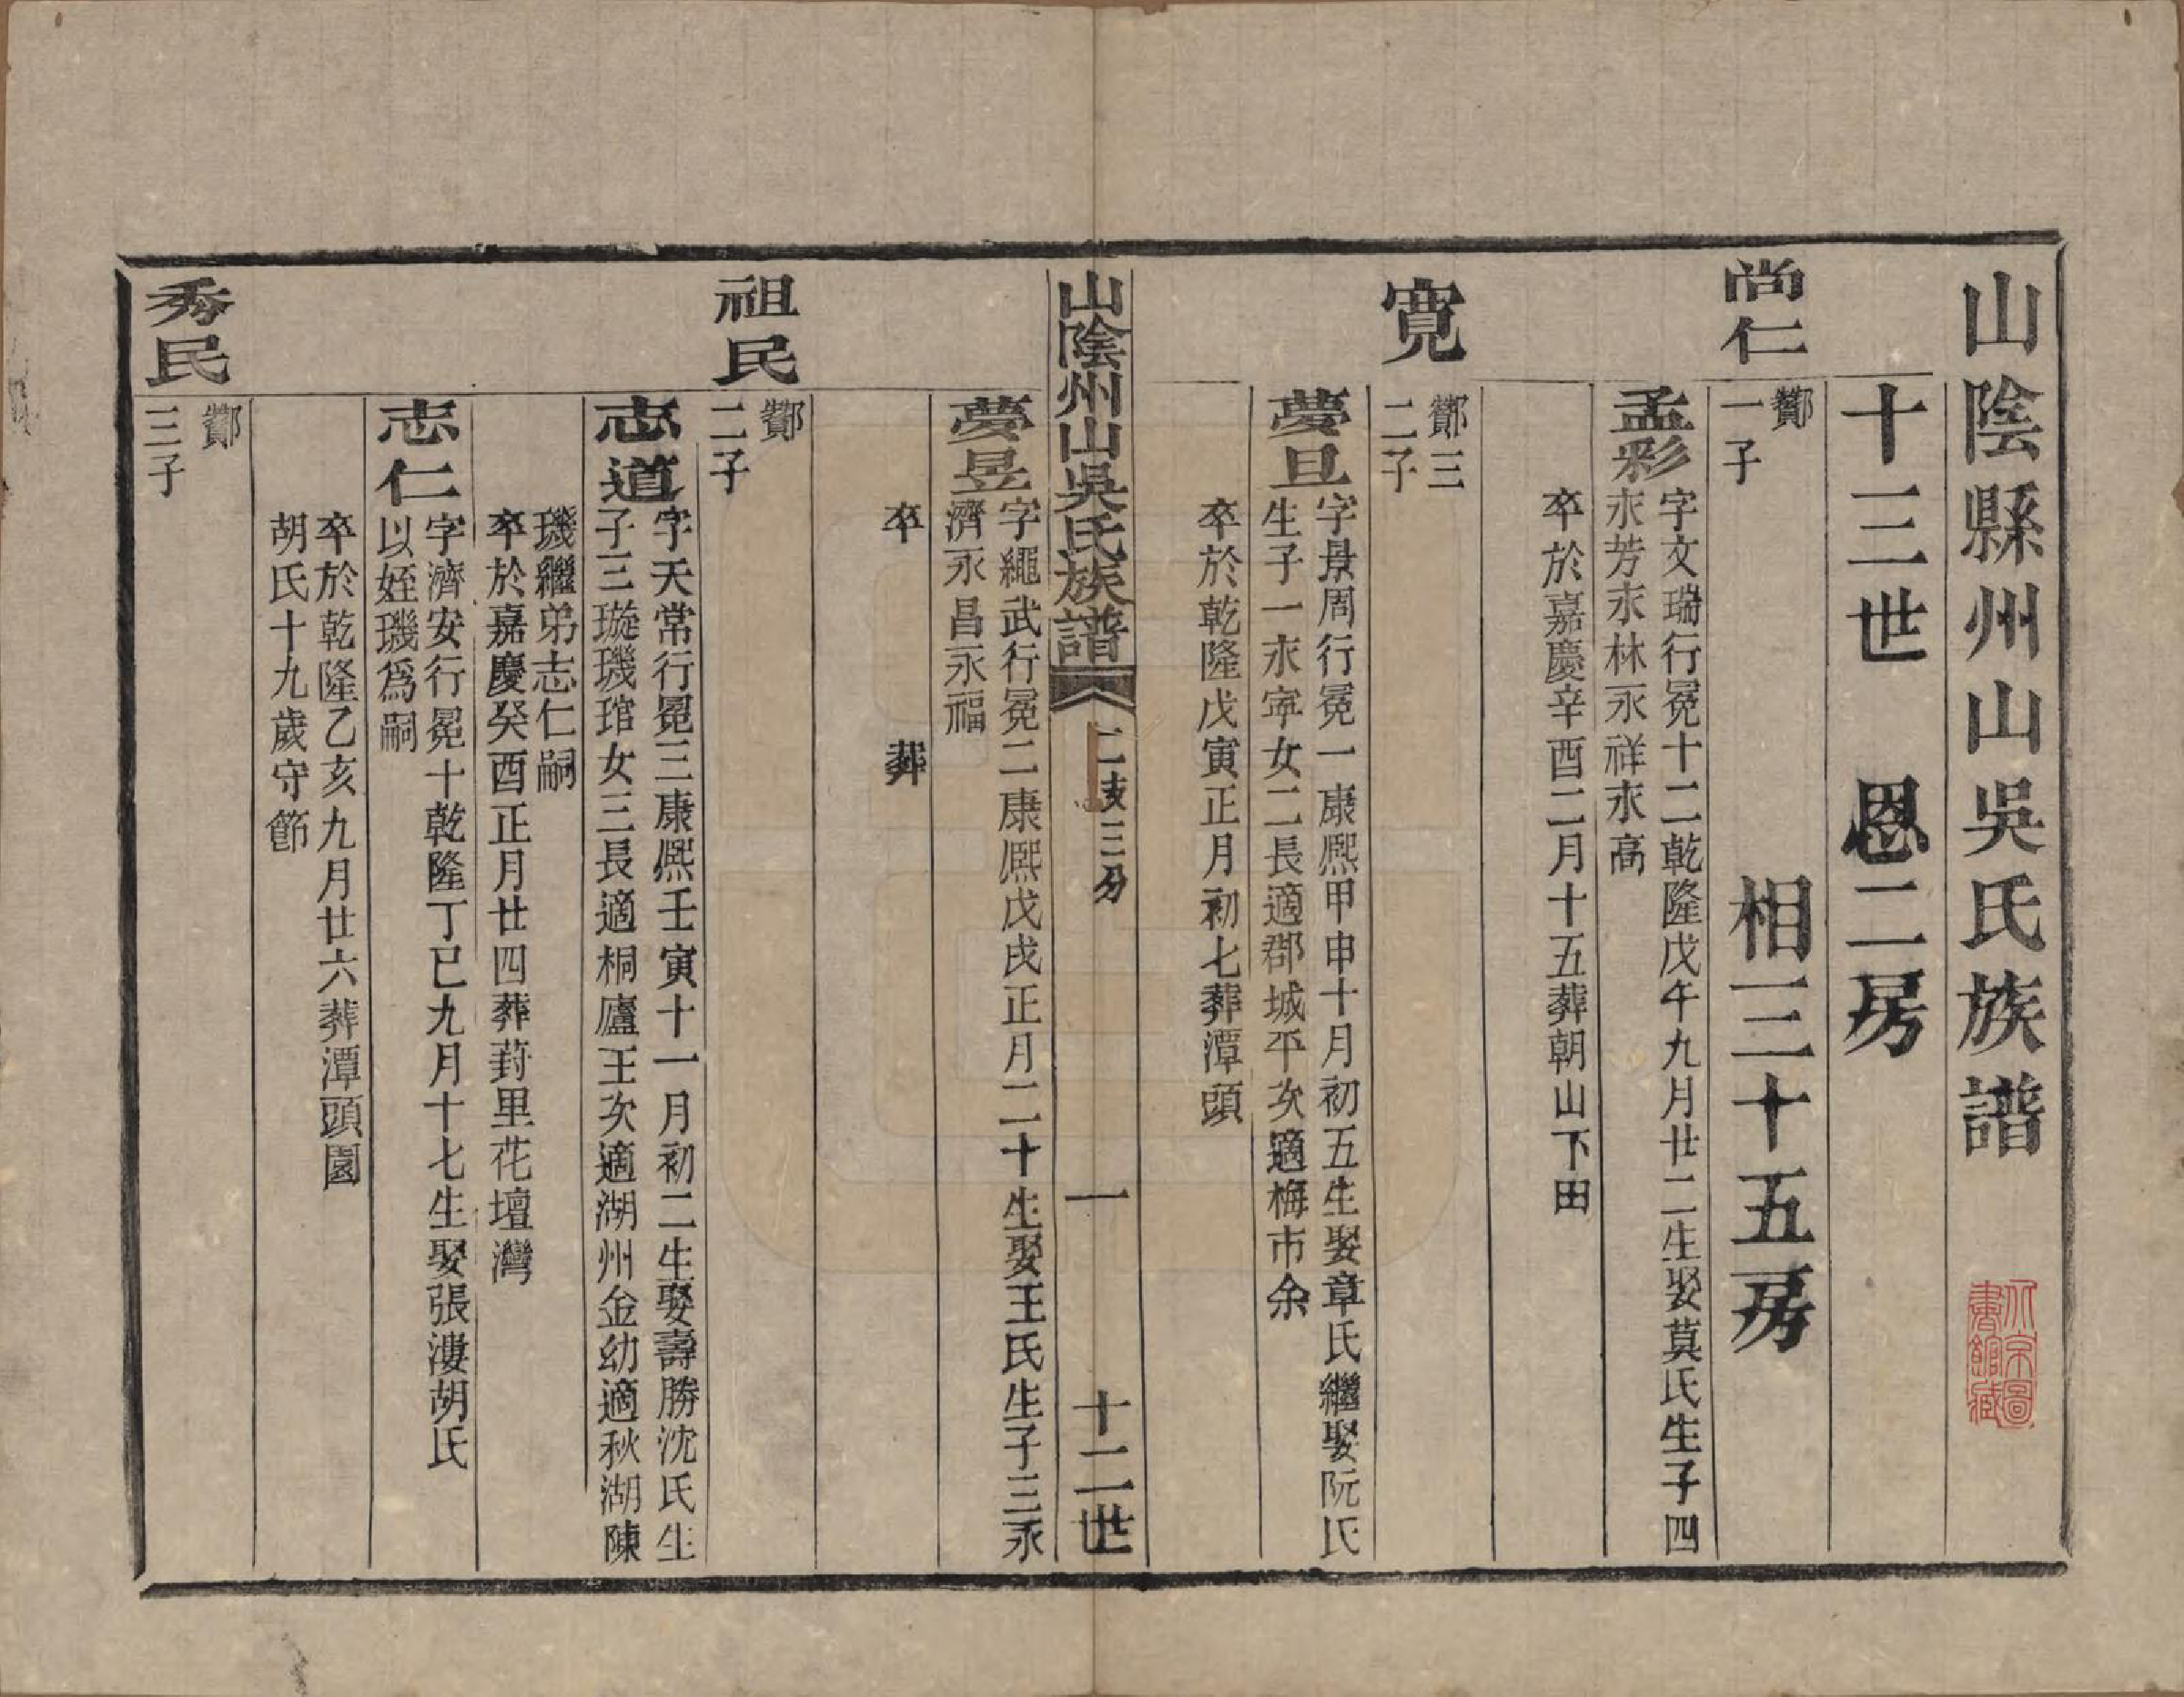 山陰縣州山吳氏族譜
北京圖
書館藏
十三世 恩二房
相三十五房
尚仁
酇
一子
孟彩
字文瑞行冕十二乾隆戊午九月廿二生娶莫氏生子四
永芳永林永祥永高
卒於嘉慶辛酉二月十五葬朝山下田
寬
酇三
二子
夢旦
字景周行冕一康熙甲申十月初五生娶章氏繼娶阮氏
生子一永寧女二長適郡城平次適梅市余
卒於乾隆戊寅正月初七葬潭頭
山陰州山吳氏族譜 二支三分 一 十三世
夢昱
字繩武行冕二康熙戊戌正月二十生娶王氏生子三永
濟永昌永福
卒 葬
祖民
酇
二子
志道
字天常行冕三康熙壬寅十一月初二生娶壽勝沈氏生
子三璇璣琯女三長適桐廬王次適湖州金幼適秋湖陳
璣繼弟志仁嗣
卒於嘉慶癸酉正月廿四葬葑里花壇灣
志仁
字濟安行冕十乾隆丁巳九月十七生娶張漊胡氏
以姪璣爲嗣
卒於乾隆乙亥九月廿六葬潭頭園
胡氏十九歲守節
秀民
酇
三子